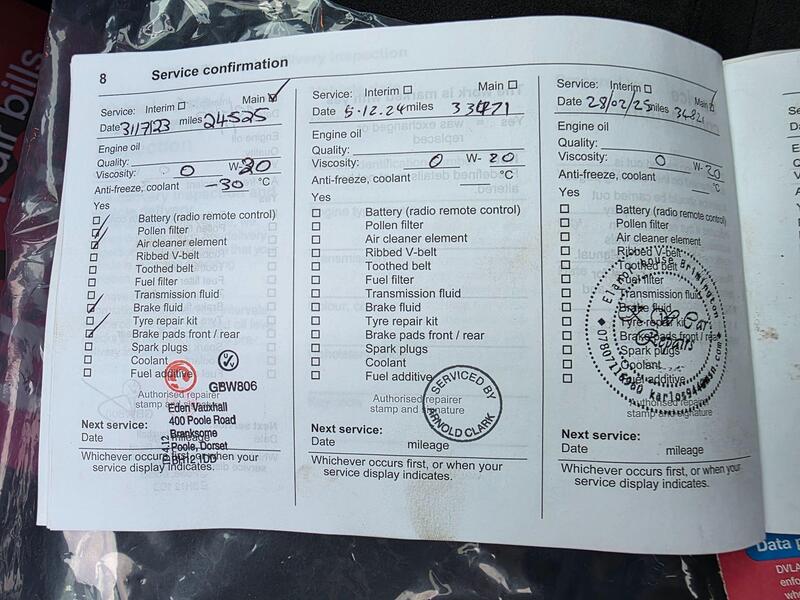 8 Service confirmation
Service: Interim Main
Date 31/7/23 miles 24525
Engine oil
Quality:
Viscosity: 0 W- 20
Anti-freeze, coolant -30 °C
Yes
Battery (radio remote control)
Pollen filter
Air cleaner element
Ribbed V-belt
Toothed belt
Fuel filter
Transmission fluid
Brake fluid
Tyre repair kit
Brake pads front / rear
Spark plugs
Coolant
Fuel additive
GBW806
Authorised repairer
stamp and signature
Eden Vauxhall
400 Poole Road
Branksome
Poole, Dorset
BH12 1DD
Next service:
Date mileage
Whichever occurs first, or when your
service display indicates.
Service: Interim Main
Date 5.12.24 miles 33471
Engine oil
Quality:
Viscosity: 0 W- 20
Anti-freeze, coolant °C
Yes
Battery (radio remote control)
Pollen filter
Air cleaner element
Ribbed V-belt
Toothed belt
Fuel filter
Transmission fluid
Brake fluid
Tyre repair kit
Brake pads front / rear
Spark plugs
Coolant
Fuel additive
Authorised repairer
stamp and signature
SERVICED BY
ARNOLD CLARK
Next service:
Date mileage
Whichever occurs first, or when your
service display indicates.
Service: Interim Main
Date 28/02/25 miles
Engine oil
Quality:
Viscosity: 0 W- 20
Anti-freeze, coolant °C
Yes
Battery (radio remote control)
Pollen filter
Air cleaner element
Ribbed V-belt
Toothed belt
Fuel filter
Transmission fluid
Brake fluid
Tyre repair kit
Brake pads front / rear
Spark plugs
Coolant
Fuel additive
Car
Repairs
Authorised repairer
stamp and signature
Next service:
Date mileage
Whichever occurs first, or when your
service display indicates.
bills
Data
DVLA